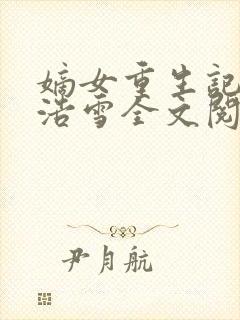 嫡女重生記
浩雪全文閱
尹月航